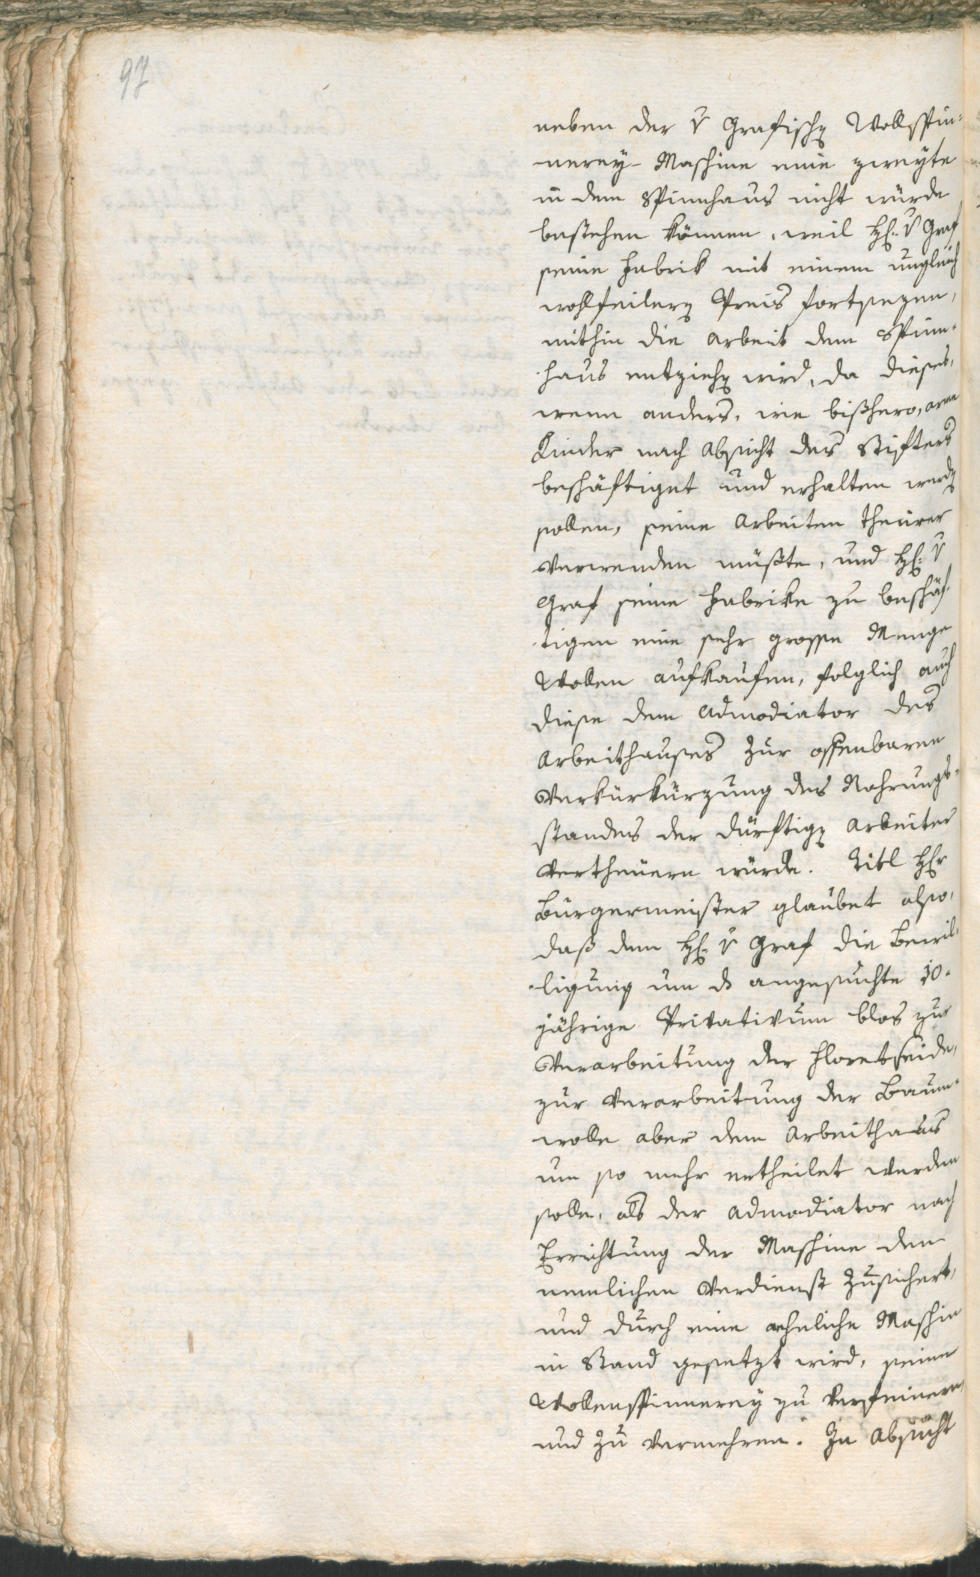 97
neben der v Grafischen Wollspin-
nerey-Maschine eine zweyte
in dem Spinnhaus nicht würde
bestehen können, weil H: v Graf
seine Fabrik mit einem ungleich
wohlfeilern Preis fortsezen,
mithin die Arbeit dem Spinn-
haus entziehen wird, da dieses,
wenn anders, wie bißhero, arme
Kinder nach Absicht des Stifters
beschäftiget und erhalten werden
sollen, seine Arbeiten theurer
verwenden müßte, und H: v
Graf seine Fabrike zu beschäf-
tigen eine sehr grosse Menge
Wollen aufkaufen, folglich auch
diese dem Admodiator des
Arbeithauses zur offenbaren
Verkürkürzung des Nahrungs-
standes der dürftigen Arbeiter
vertheuern würde. Titl Hr
Bürgermeister glaubet also,
daß dem H: v Graf die Bewil-
ligung um d angesuchte 10-
jährige Privativum blos zur
Verarbeitung der Floretseide,
zur Verarbeitung der Baum-
wolle aber dem Arbeithaus
um so mehr ertheilet werden
solle, als der Admodiator nach
Errichtung der Maschine den
nemlichen Verdienst zusichert,
und durch eine aehnliche Maschin
in Stand gesetzt wird, seine
Wollenspinnerey zu verfeinern
und zu vermehren. In Absicht